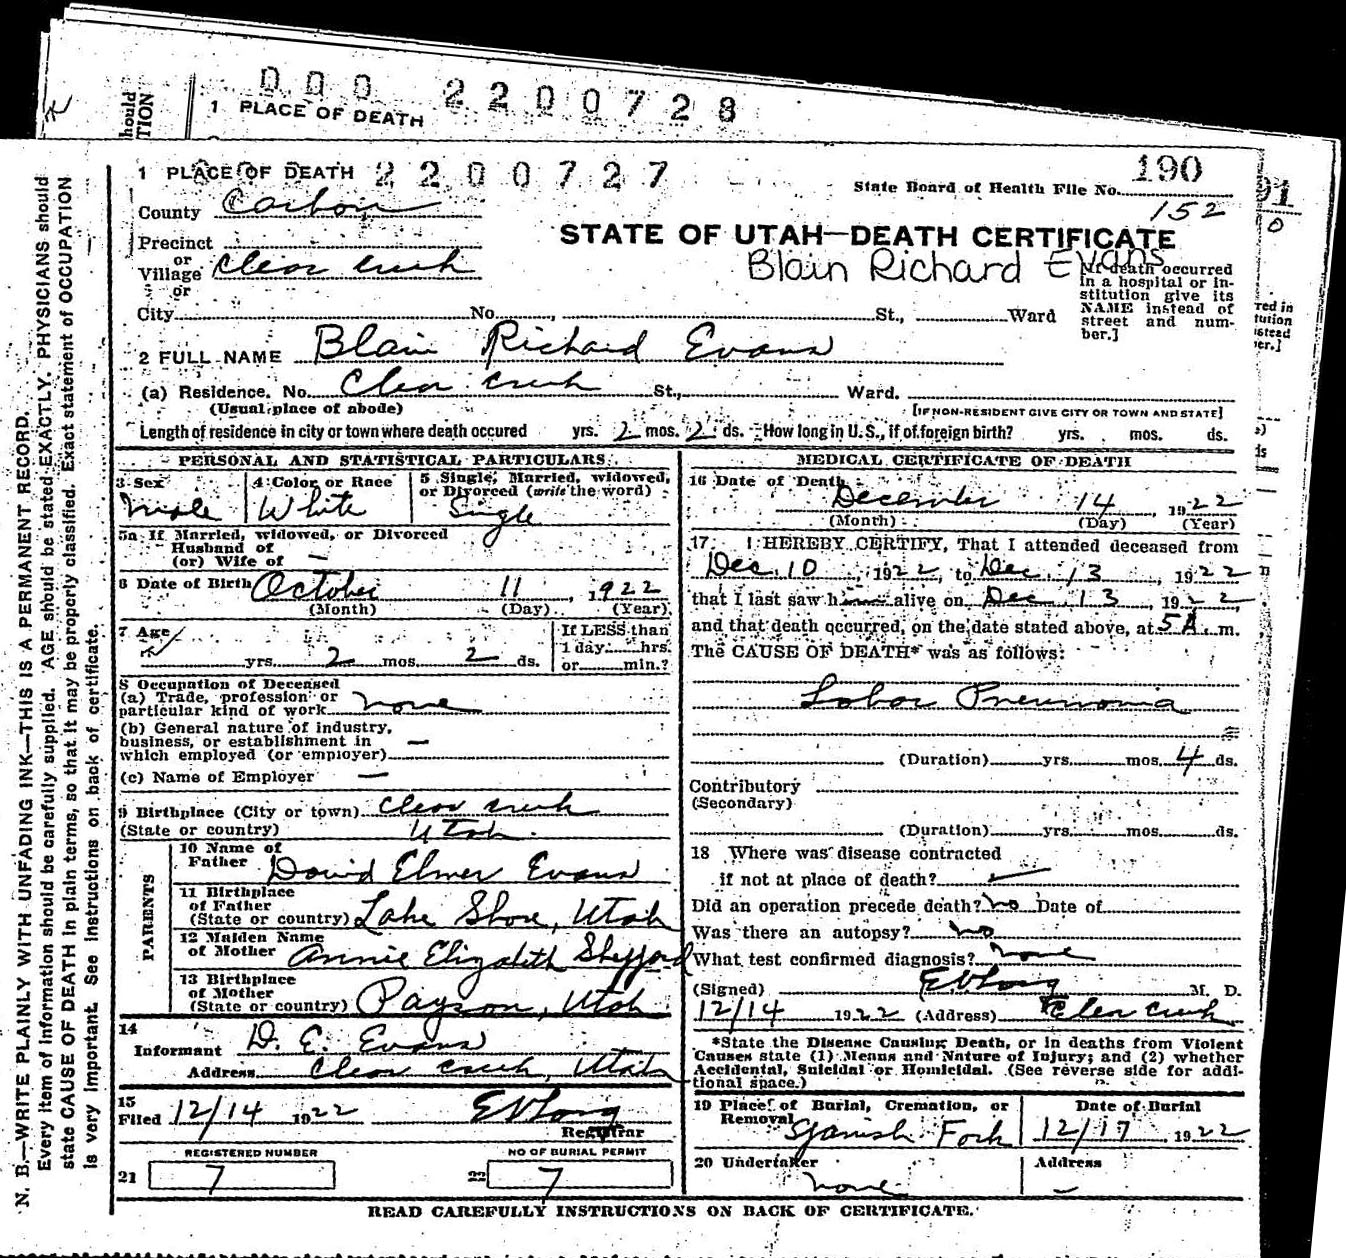 000 2200728
hould
TION
1 PLACE OF DEATH
1 PLACE OF DEATH 2200727
190
State Board of Health File No.
152
County Carbon
STATE OF UTAH—DEATH CERTIFICATE
Blain Richard Evans
Precinct
or
Village Clear Creek
or
City No. St., Ward
[If death occurred
in a hospital or in-
stitution give its
NAME instead of
street and num-
ber.]
91
0
red in
tution
stead
er.]
2 FULL NAME Blain Richard Evans
(a) Residence. No. Clear Creek St., Ward.
(Usual place of abode) [IF NON-RESIDENT GIVE CITY OR TOWN AND STATE]
Length of residence in city or town where death occured yrs. 2 mos. 2 ds. How long in U.S., if of foreign birth? yrs. mos. ds.
PERSONAL AND STATISTICAL PARTICULARS
3 Sex Male
4 Color or Race White
5 Single, Married, widowed,
or Divorced (write the word)
Single
5a If Married, widowed, or Divorced
Husband of
(or) Wife of —
6 Date of Birth October 11, 1922
(Month) (Day) (Year)
7 Age
yrs. 2 mos. 2 ds.
If LESS than
1 day hrs.
or min.?
8 Occupation of Deceased
(a) Trade, profession or
particular kind of work none
(b) General nature of industry,
business, or establishment in
which employed (or employer) —
(c) Name of Employer —
9 Birthplace (City or town) Clear Creek
(State or country) Utah
PARENTS
10 Name of
Father David Elmer Evans
11 Birthplace
of Father
(State or country) Lake Shore, Utah
12 Maiden Name
of Mother Annie Elizabeth Shefford
13 Birthplace
of Mother
(State or country) Payson, Utah
14
Informant D. E. Evans
Address Clear Creek, Utah
15
Filed 12/14 1922 EVLong
Registrar
REGISTERED NUMBER
21 7
NO OF BURIAL PERMIT
22 7
MEDICAL CERTIFICATE OF DEATH
16 Date of Death
December 14, 1922
(Month) (Day) (Year)
17 I HEREBY CERTIFY, That I attended deceased from
Dec. 10, 1922, to Dec. 13, 1922
that I last saw him alive on Dec. 13, 1922,
and that death occurred, on the date stated above, at 5 A. m.
The CAUSE OF DEATH* was as follows:
Lobar Pneumonia
(Duration) yrs. mos. 4 ds.
Contributory
(Secondary)
(Duration) yrs. mos. ds.
18 Where was disease contracted
if not at place of death?
Did an operation precede death? no Date of
Was there an autopsy? no
What test confirmed diagnosis? none
(Signed) EVLong M. D.
12/14 1922 (Address) Clear Creek
*State the Disease Causing Death, or in deaths from Violent
Causes state (1) Means and Nature of Injury; and (2) whether
Accidental, Suicidal or Homicidal. (See reverse side for addi-
tional space.)
19 Place of Burial, Cremation, or
Removal Spanish Fork
Date of Burial
12/17 1922
20 Undertaker
none
Address
—
READ CAREFULLY INSTRUCTIONS ON BACK OF CERTIFICATE.
N. B.—WRITE PLAINLY WITH UNFADING INK—THIS IS A PERMANENT RECORD.
Every item of information should be carefully supplied. AGE should be stated EXACTLY. PHYSICIANS should
state CAUSE OF DEATH in plain terms, so that it may be properly classified. Exact statement of OCCUPATION
is very important. See instructions on back of certificate.